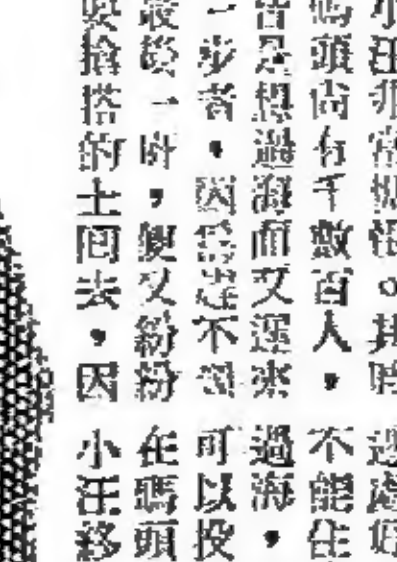 小汪非常。其時
碼頭尚有千數百人，
皆是想過海而又遲來
一步者，因爲不到
一時，便又紛紛
要搶搭的士回去，因
不能住
過海，
可以投
在碼頭
小汪移